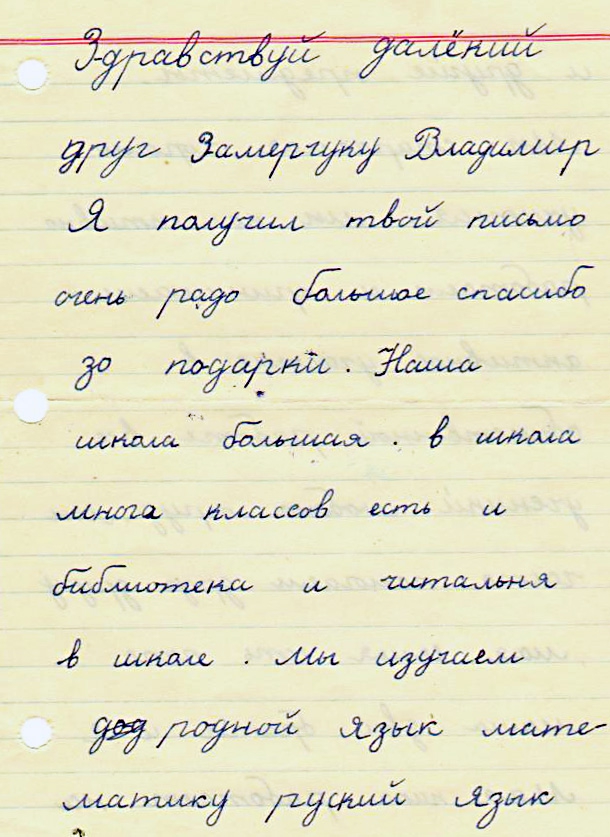 Здравствуй далёкий
друг Замерчуку Владимир
Я получил твой письмо
очень радо большое спасибо
зо подарки. Наша
школа большая. в школа
многа классов есть и
библиотека и читальня
в школе. Мы изучаем
родной язык мате-
матику руский язык